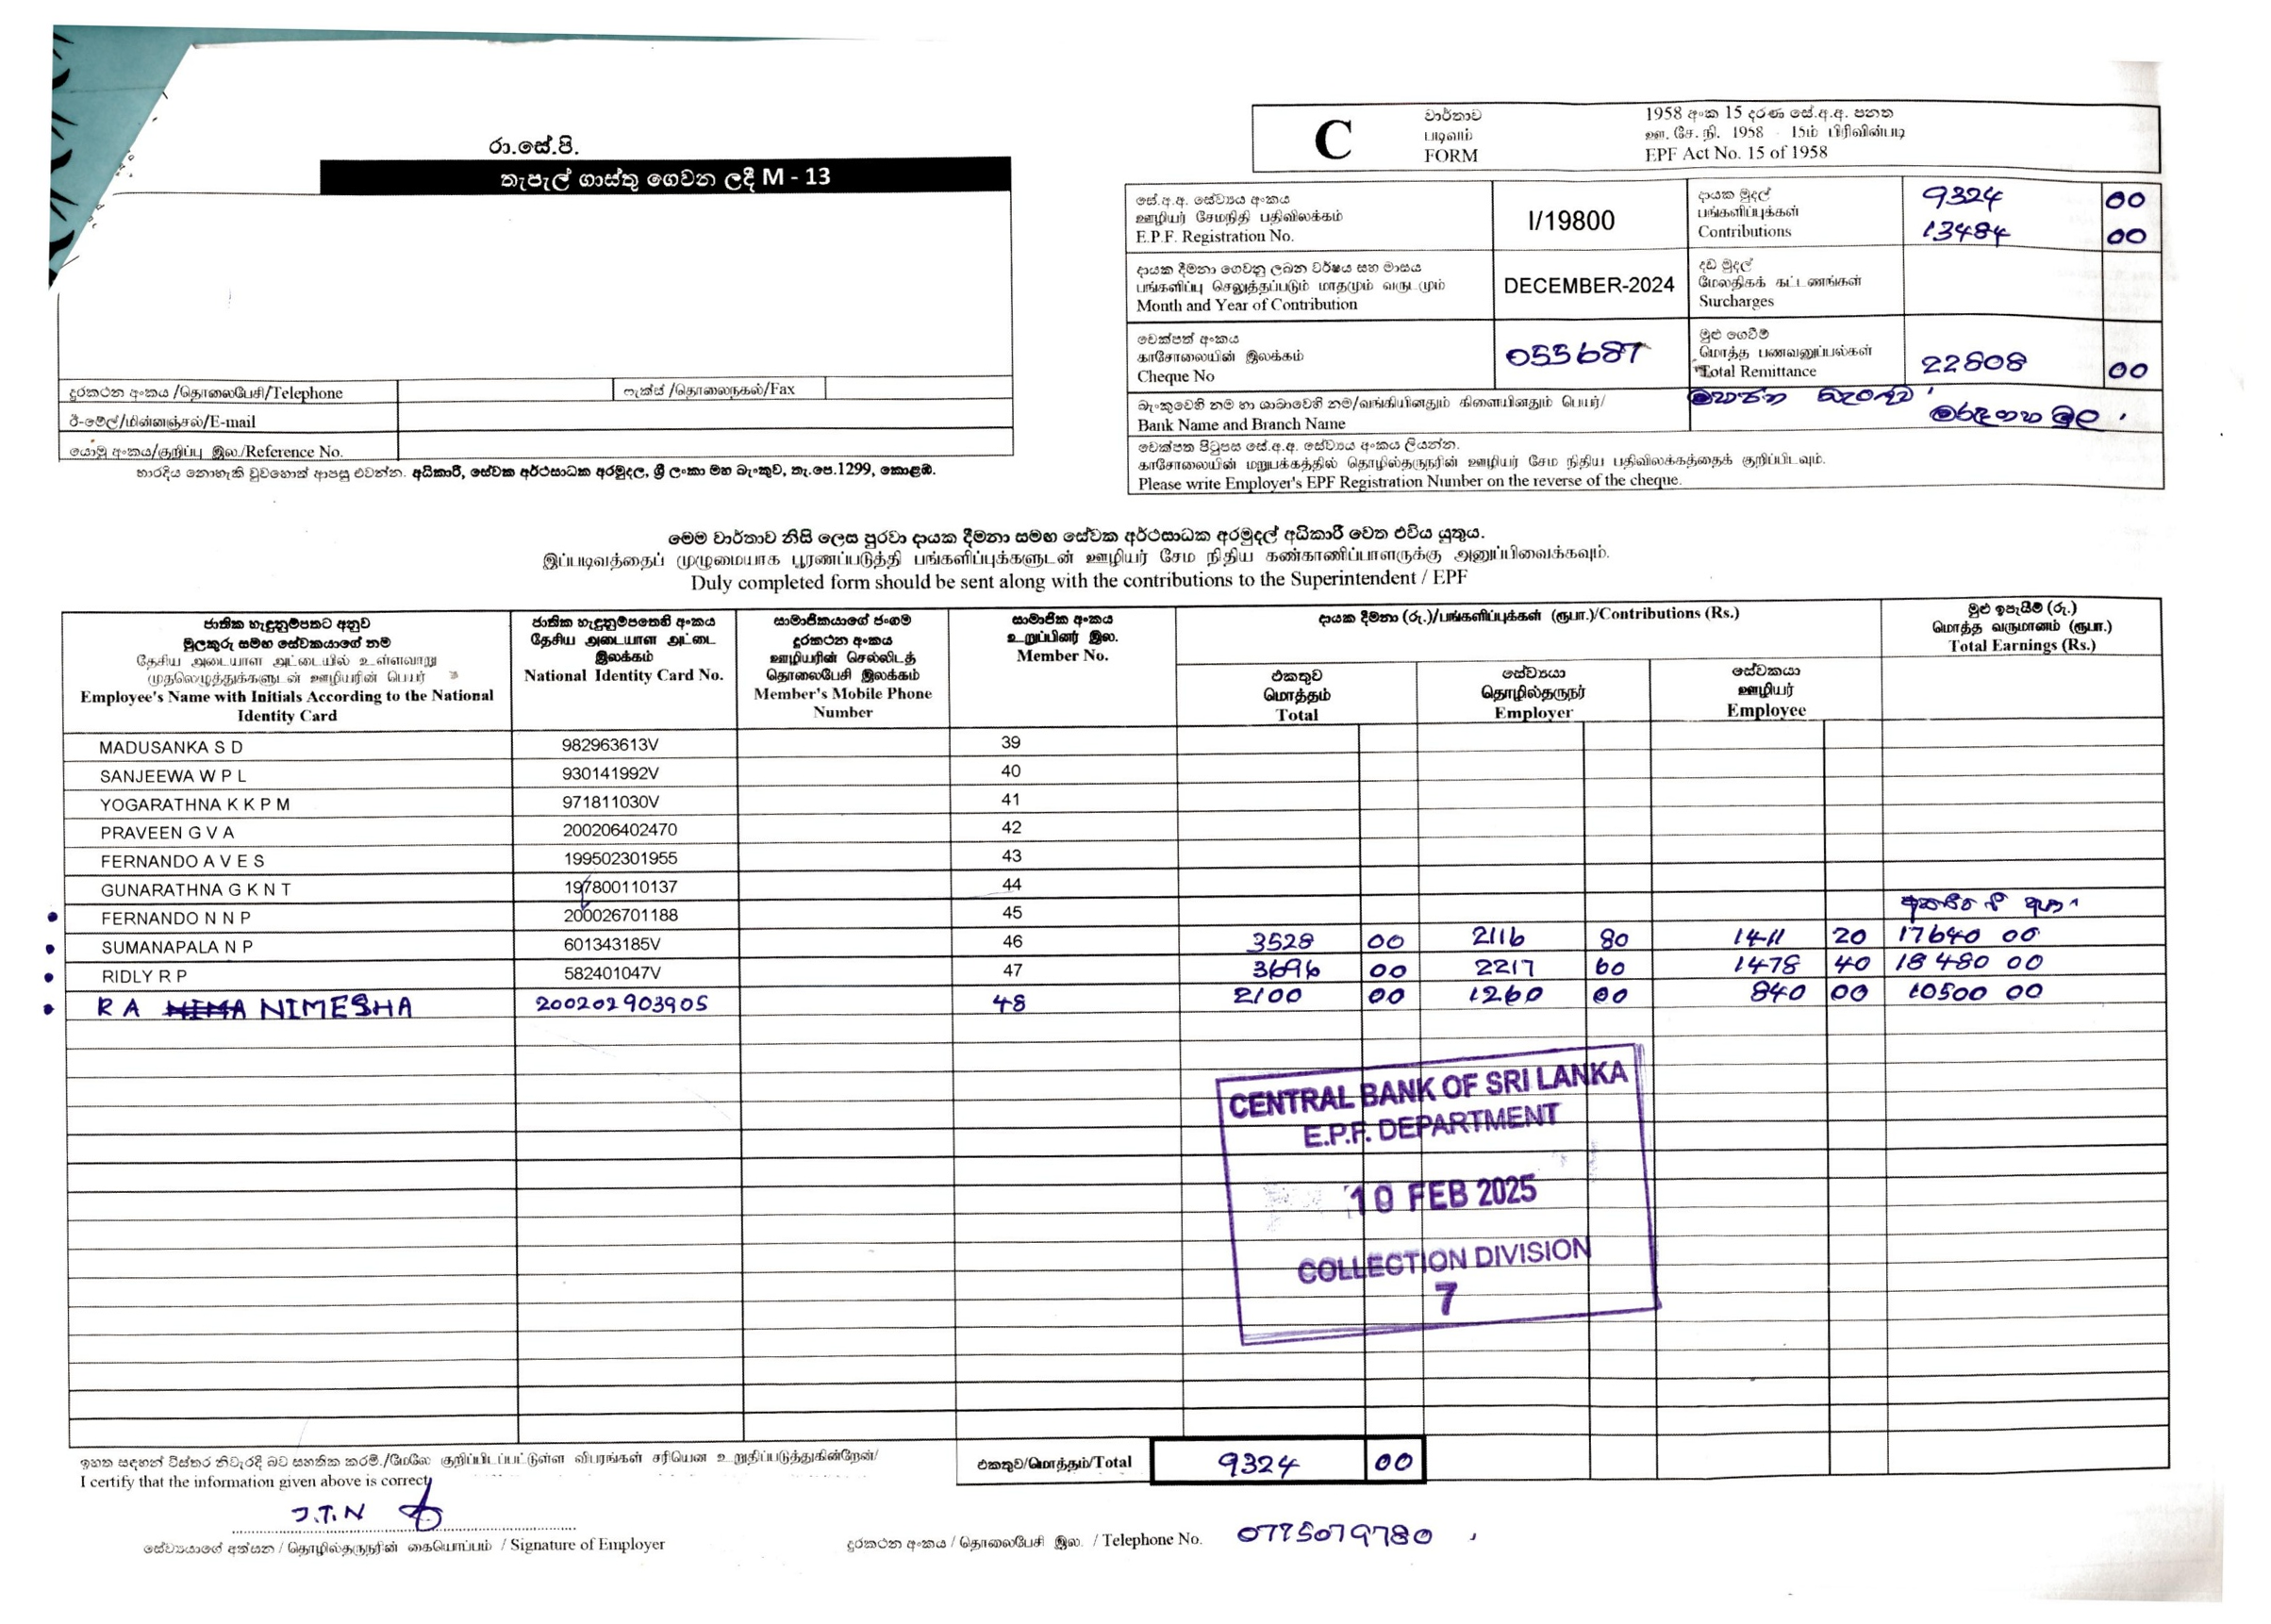 රා.සේ.පි.
තැපැල් ගාස්තු ගෙවන ලදී M - 13
දුරකථන අංකය /தொலைபேசி/Telephone
ෆැක්ස් /தொலைநகல்/Fax
ඊ-මේල්/மின்னஞ்சல்/E-mail
යොමු අංකය/குறிப்பு இல./Reference No.
භාරදිය නොහැකි වුවහොත් ආපසු එවන්න. අධිකාරී, සේවක අර්ථසාධක අරමුදල, ශ්‍රී ලංකා මහ බැංකුව, තැ.පෙ.1299, කොළඹ.
C
වාර්තාව
படிவம்
FORM
1958 අංක 15 දරණ සේ.අ.අ. පනත
ஊ. சே. நி. 1958 - 15ம் பிரிவின்படி
EPF Act No. 15 of 1958
සේ.අ.අ. සේව්‍යය අංකය
ஊழியர் சேமநிதி பதிவிலக்கம்
E.P.F. Registration No.
I/19800
දායක මුදල්
பங்களிப்புக்கள்
Contributions
9324 00
13484 00
දායක දීමනා ගෙවනු ලබන වර්ෂය සහ මාසය
பங்களிப்பு செலுத்தப்படும் மாதமும் வருடமும்
Month and Year of Contribution
DECEMBER-2024
දඩ මුදල්
மேலதிகக் கட்டணங்கள்
Surcharges
චෙක්පත් අංකය
காசோலையின் இலக்கம்
Cheque No
055687
මුළු ගෙවීම්
மொத்த பணவனுப்பல்கள்
Total Remittance
22808 00
බැංකුවෙහි නම හා ශාඛාවෙහි නම/வங்கியினதும் கிளையினதும் பெயர்/
Bank Name and Branch Name
මහජන බැංකුව
මරදගහමුල
චෙක්පත පිටුපස සේ.අ.අ. සේව්‍යය අංකය ලියන්න.
காசோலையின் மறுபக்கத்தில் தொழில்தருநரின் ஊழியர் சேம நிதிய பதிவிலக்கத்தைக் குறிப்பிடவும்.
Please write Employer's EPF Registration Number on the reverse of the cheque.
මෙම වාර්තාව නිසි ලෙස පුරවා දායක දීමනා සමඟ සේවක අර්ථසාධක අරමුදල් අධිකාරී වෙත එවිය යුතුය.
இப்படிவத்தைப் முழுமையாக பூரணப்படுத்தி பங்களிப்புக்களுடன் ஊழியர் சேம நிதிய கண்காணிப்பாளருக்கு அனுப்பிவைக்கவும்.
Duly completed form should be sent along with the contributions to the Superintendent / EPF
ජාතික හැඳුනුම්පතට අනුව
මුලකුරු සමඟ සේවකයාගේ නම
தேசிய அடையாள அட்டையில் உள்ளவாறு
முதலெழுத்துக்களுடன் ஊழியரின் பெயர்
Employee's Name with Initials According to the National
Identity Card
ජාතික හැඳුනුම්පතෙහි අංකය
தேசிய அடையாள அட்டை
இலக்கம்
National Identity Card No.
සාමාජිකයාගේ ජංගම
දුරකථන අංකය
ஊழியரின் செல்லிடத்
தொலைபேசி இலக்கம்
Member's Mobile Phone
Number
සාමාජික අංකය
உறுப்பினர் இல.
Member No.
දායක දීමනා (රු.)/பங்களிப்புக்கள் (ரூபா.)/Contributions (Rs.)
එකතුව
மொத்தம்
Total
සේව්‍යයා
தொழில்தருநர்
Employer
සේවකයා
ஊழியர்
Employee
මුළු ඉපැයීම් (රු.)
மொத்த வருமானம் (ரூபா.)
Total Earnings (Rs.)
MADUSANKA S D 982963613V 39
SANJEEWA W P L 930141992V 40
YOGARATHNA K K P M 971811030V 41
PRAVEEN G V A 200206402470 42
FERNANDO A V E S 199502301955 43
GUNARATHNA G K N T 197800110137 44
FERNANDO N N P 200026701188 45
SUMANAPALA N P 601343185V 46 3528 00 2116 80 1411 20 17640 00
RIDLY R P 582401047V 47 3696 00 2217 60 1478 40 18480 00
R A NIMA NIMESHA 200202903905 48 2100 00 1260 00 840 00 10500 00
CENTRAL BANK OF SRI LANKA
E.P.F. DEPARTMENT
10 FEB 2025
COLLECTION DIVISION
7
එකතුව/மொத்தம்/Total 9324 00
ඉහත සඳහන් විස්තර නිවැරදි බව සහතික කරමි./மேலே குறிப்பிடப்பட்டுள்ள விபரங்கள் சரியென உறுதிப்படுத்துகின்றேன்/
I certify that the information given above is correct
J.T.N
සේව්‍යයාගේ අත්සන / தொழில்தருநரின் கையொப்பம் / Signature of Employer
දුරකථන අංකය / தொலைபேசி இல. / Telephone No. 0775079780